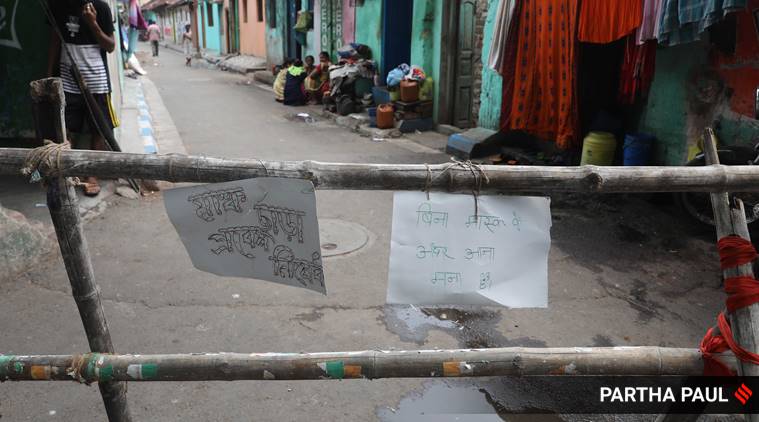 মাস্ক ছাড়া
প্রবেশ
নিষেধ
बिना मास्क के
अंदर आना
मना है
PARTHA PAUL